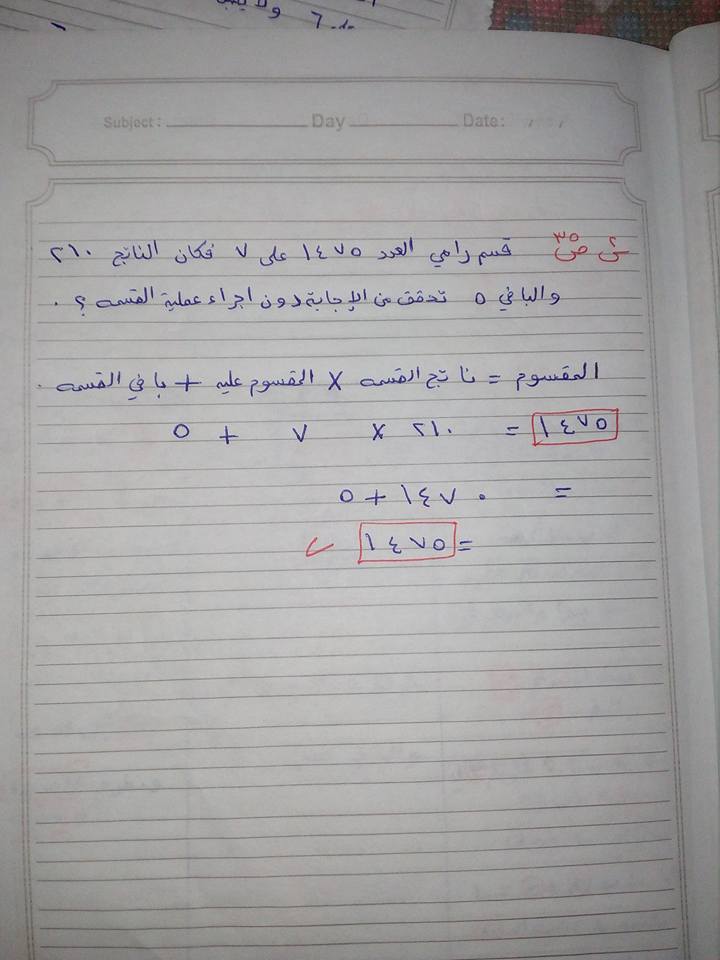 ولا يجب على ٦
Subject: Day Date: / /
س ص ٣٥ قسم رامي العدد ١٤٧٥ على ٧ فكان الناتج ٢١٠
والباقي ٥ تحقق من الإجابة دون اجراء عملية القسمه ؟ .
المقسوم = ناتج القسمه × المقسوم عليه + باقي القسمه .
١٤٧٥ = ٢١٠ × ٧ + ٥
= ١٤٧٠ + ٥
= ١٤٧٥ ✓